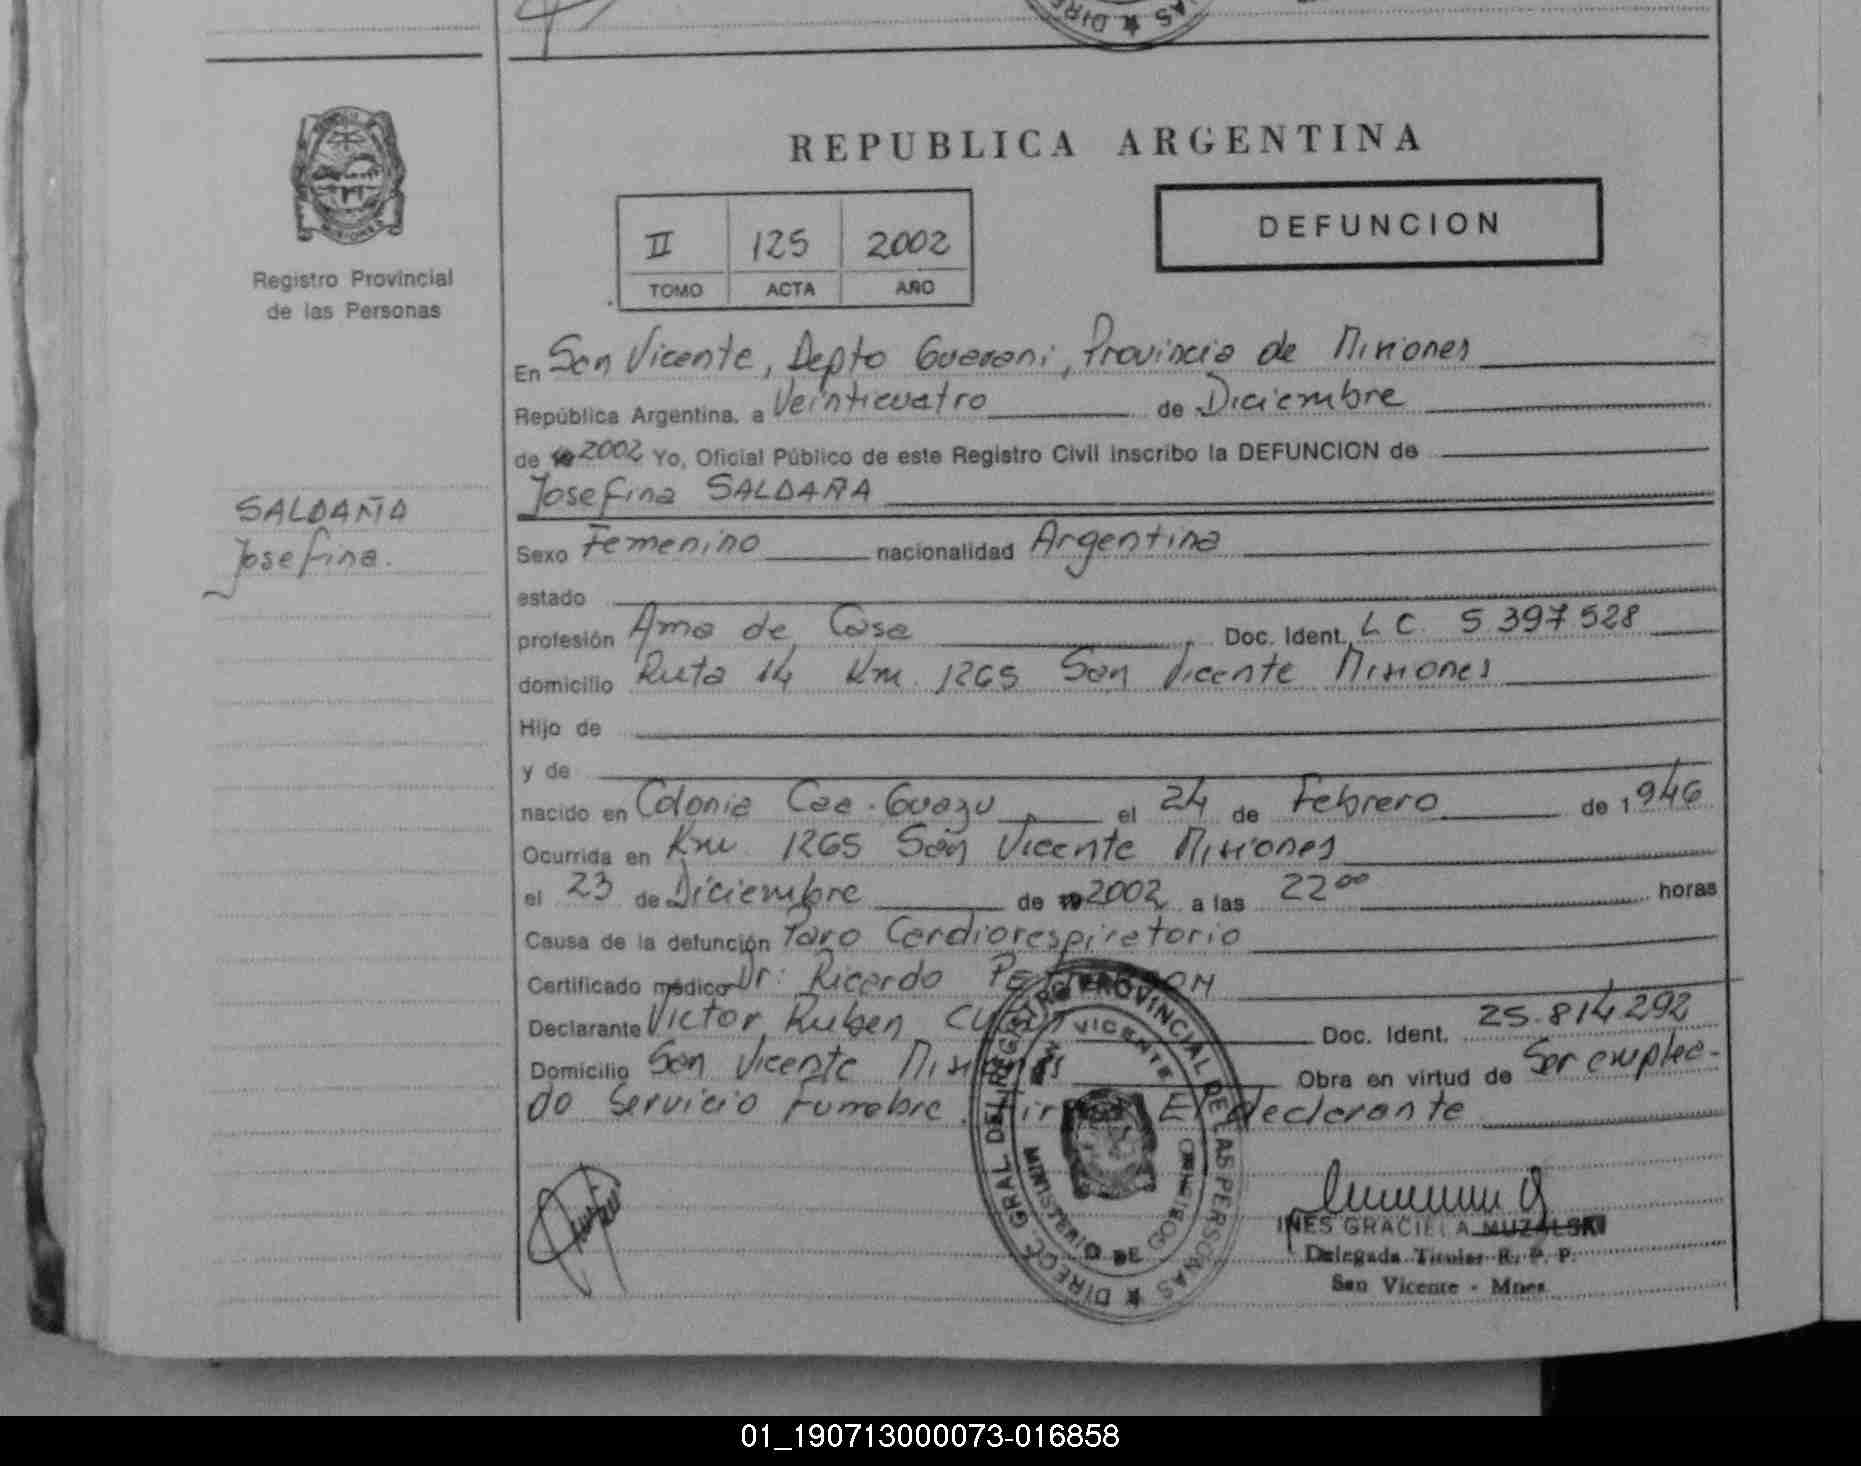 REPUBLICA ARGENTINA
DEFUNCION
II 125 2002
TOMO ACTA AÑO
Registro Provincial
de las Personas
En San Vicente, Depto Guarani, Provincia de Misiones
República Argentina, a Veinticuatro de Diciembre
de 2002 Yo, Oficial Público de este Registro Civil inscribo la DEFUNCION de
Josefina SALDAÑA
SALDAÑA
Josefina.
Sexo Femenino nacionalidad Argentina
estado
profesión Ama de Casa Doc. Ident. L C. 5.397.528
domicilio Ruta 14 Km. 1265 San Vicente Misiones
Hijo de
y de
nacido en Colonia Caa-Guazu el 24 de Febrero de 1946
Ocurrida en Km. 1265 San Vicente Misiones
el 23 de Diciembre de 2002 a las 22⁰⁰ horas
Causa de la defunción Paro Cardiorespiratorio
Certificado médico Dr: Ricardo
Declarante Victor Ruben Doc. Ident. 25.814.292
Domicilio San Vicente Misiones Obra en virtud de Ser emplea-
do Servicio Funebre. Firma El declarante
DIRECC. GRAL DEL REGISTRO PROVINCIAL DE LAS PERSONAS
VICENTE
MINISTERIO DE GOBIERNO
INES GRACIELA MUZALSKI
Delegada Titular R. P. P.
San Vicente - Mnes.
01_190713000073-016858